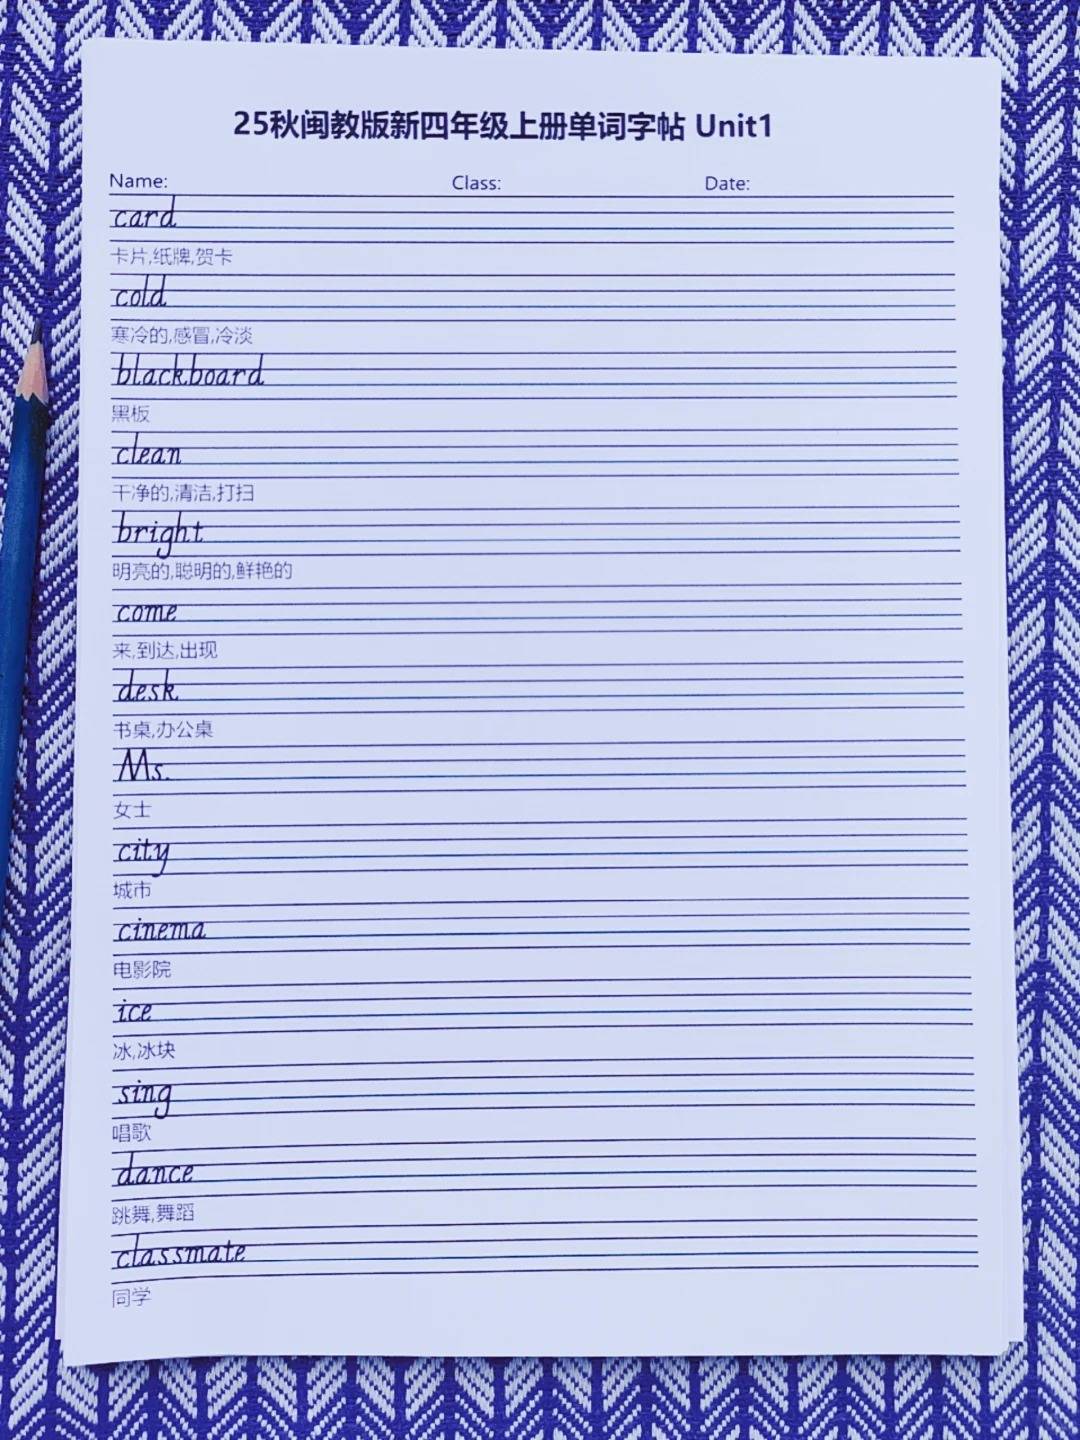 25秋闽教版新四年级上册单词字帖 Unit1
Name: Class: Date:
card
卡片,纸牌,贺卡
cold
寒冷的,感冒,冷淡
blackboard
黑板
clean
干净的,清洁,打扫
bright
明亮的,聪明的,鲜艳的
come
来,到达,出现
desk
书桌,办公桌
Ms.
女士
city
城市
cinema
电影院
ice
冰,冰块
sing
唱歌
dance
跳舞,舞蹈
classmate
同学